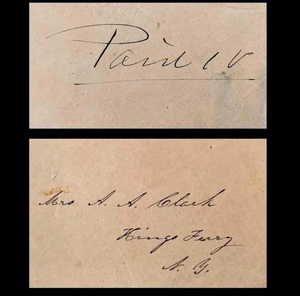 Paid 10
Mrs A. A. Clark
Kings Ferry
N. Y.